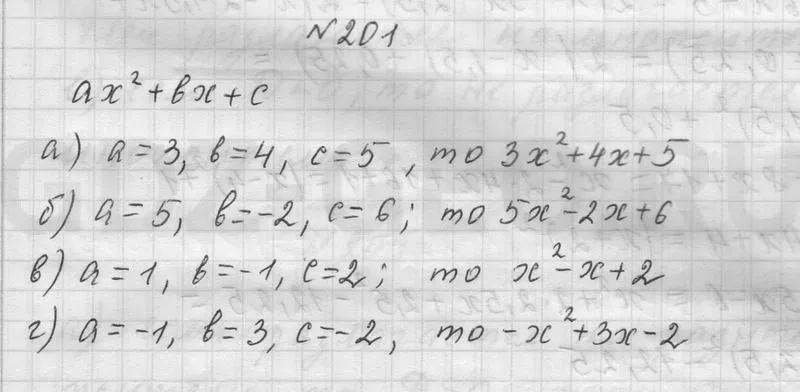 №201
ax²+вx+c
а) a=3, в=4, c=5, то 3x²+4x+5
б) a=5, в=-2, c=6; то 5x²-2x+6
в) a=1, в=-1, c=2; то x²-x+2
г) a=-1, в=3, c=-2, то -x²+3x-2